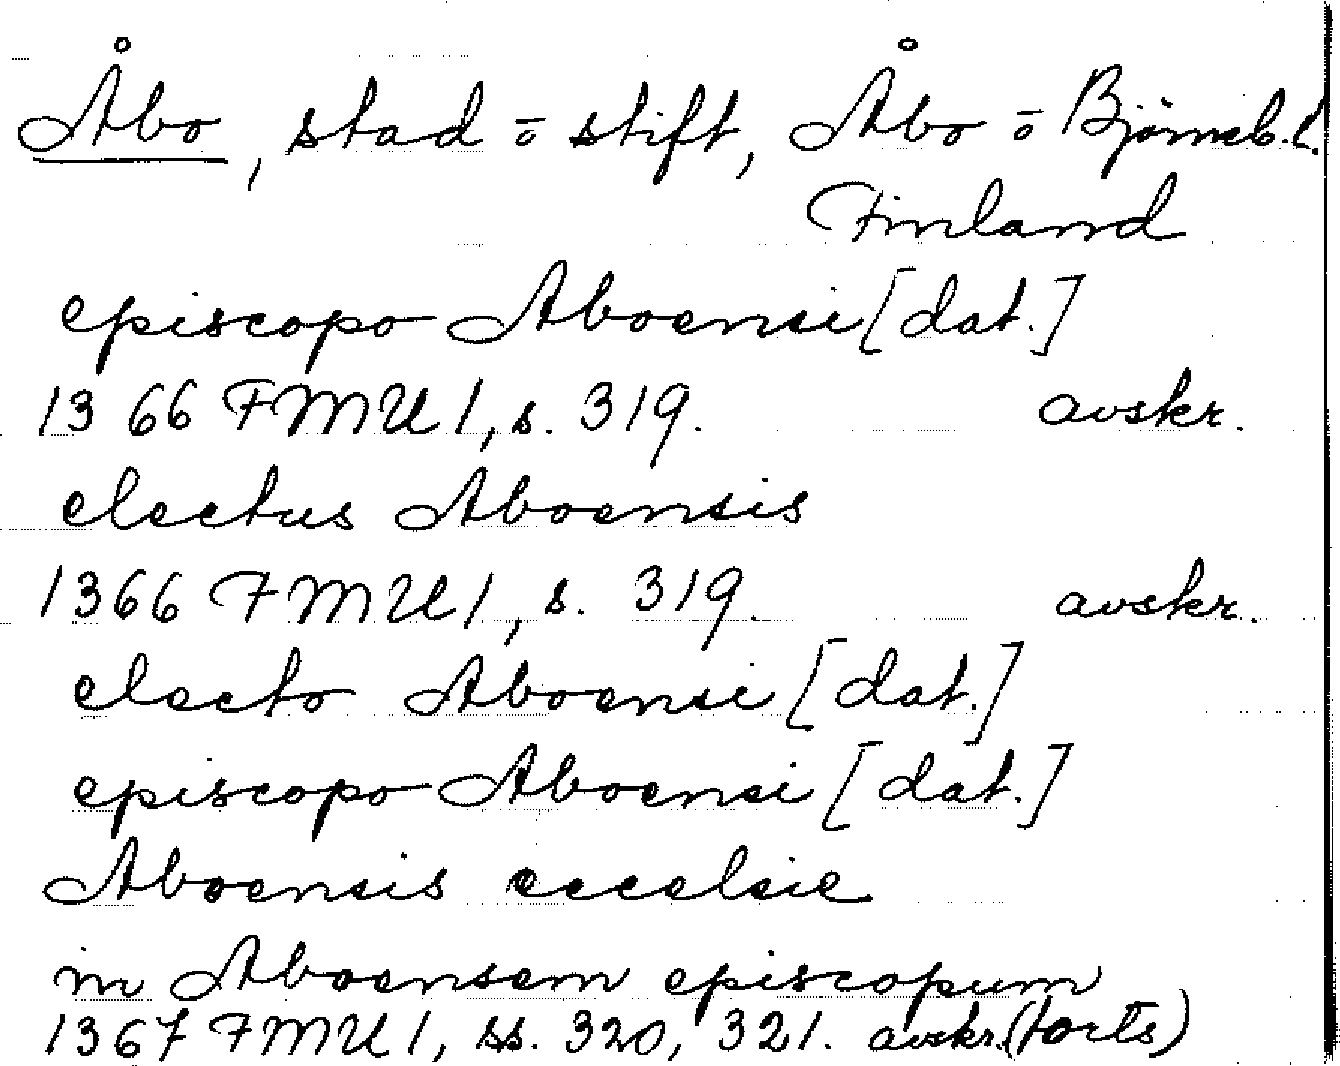 Åbo, stad o stift, Åbo o Björneb. l.
Finland
episcopo Aboensi [dat.]
1366 FMU 1, s. 319. avskr.
electus Aboensis
1366 FMU 1, s. 319. avskr.
electo Aboensi [dat.]
episcopo Aboensi [dat.]
Aboensis eccelsie
in Aboensem episcopum
1367 FMU 1, ss. 320, 321. avskr. (forts)